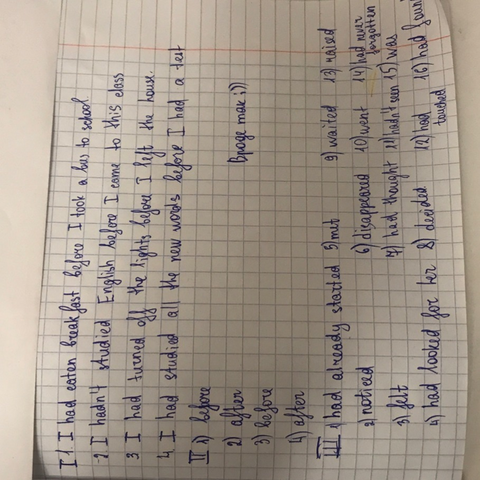 I 1 I had eaten breakfast before I took a bus to school
2 I hadn't studied English before I came to this class
3 I had turned off the lights before I left the house.
4 I had studied all the new words before I had a test
II 1) before
2) after
3) before
4) after
Вроде так ;))
III 1) had already started
2) noticed
3 felt
4) had looked for her
5) met
6) disappeared
7) had thought
8) decided
9) waited
10) went
11) hadn't seen
12) had touched
13) raised
14) had never forgotten
15) was
16) had found